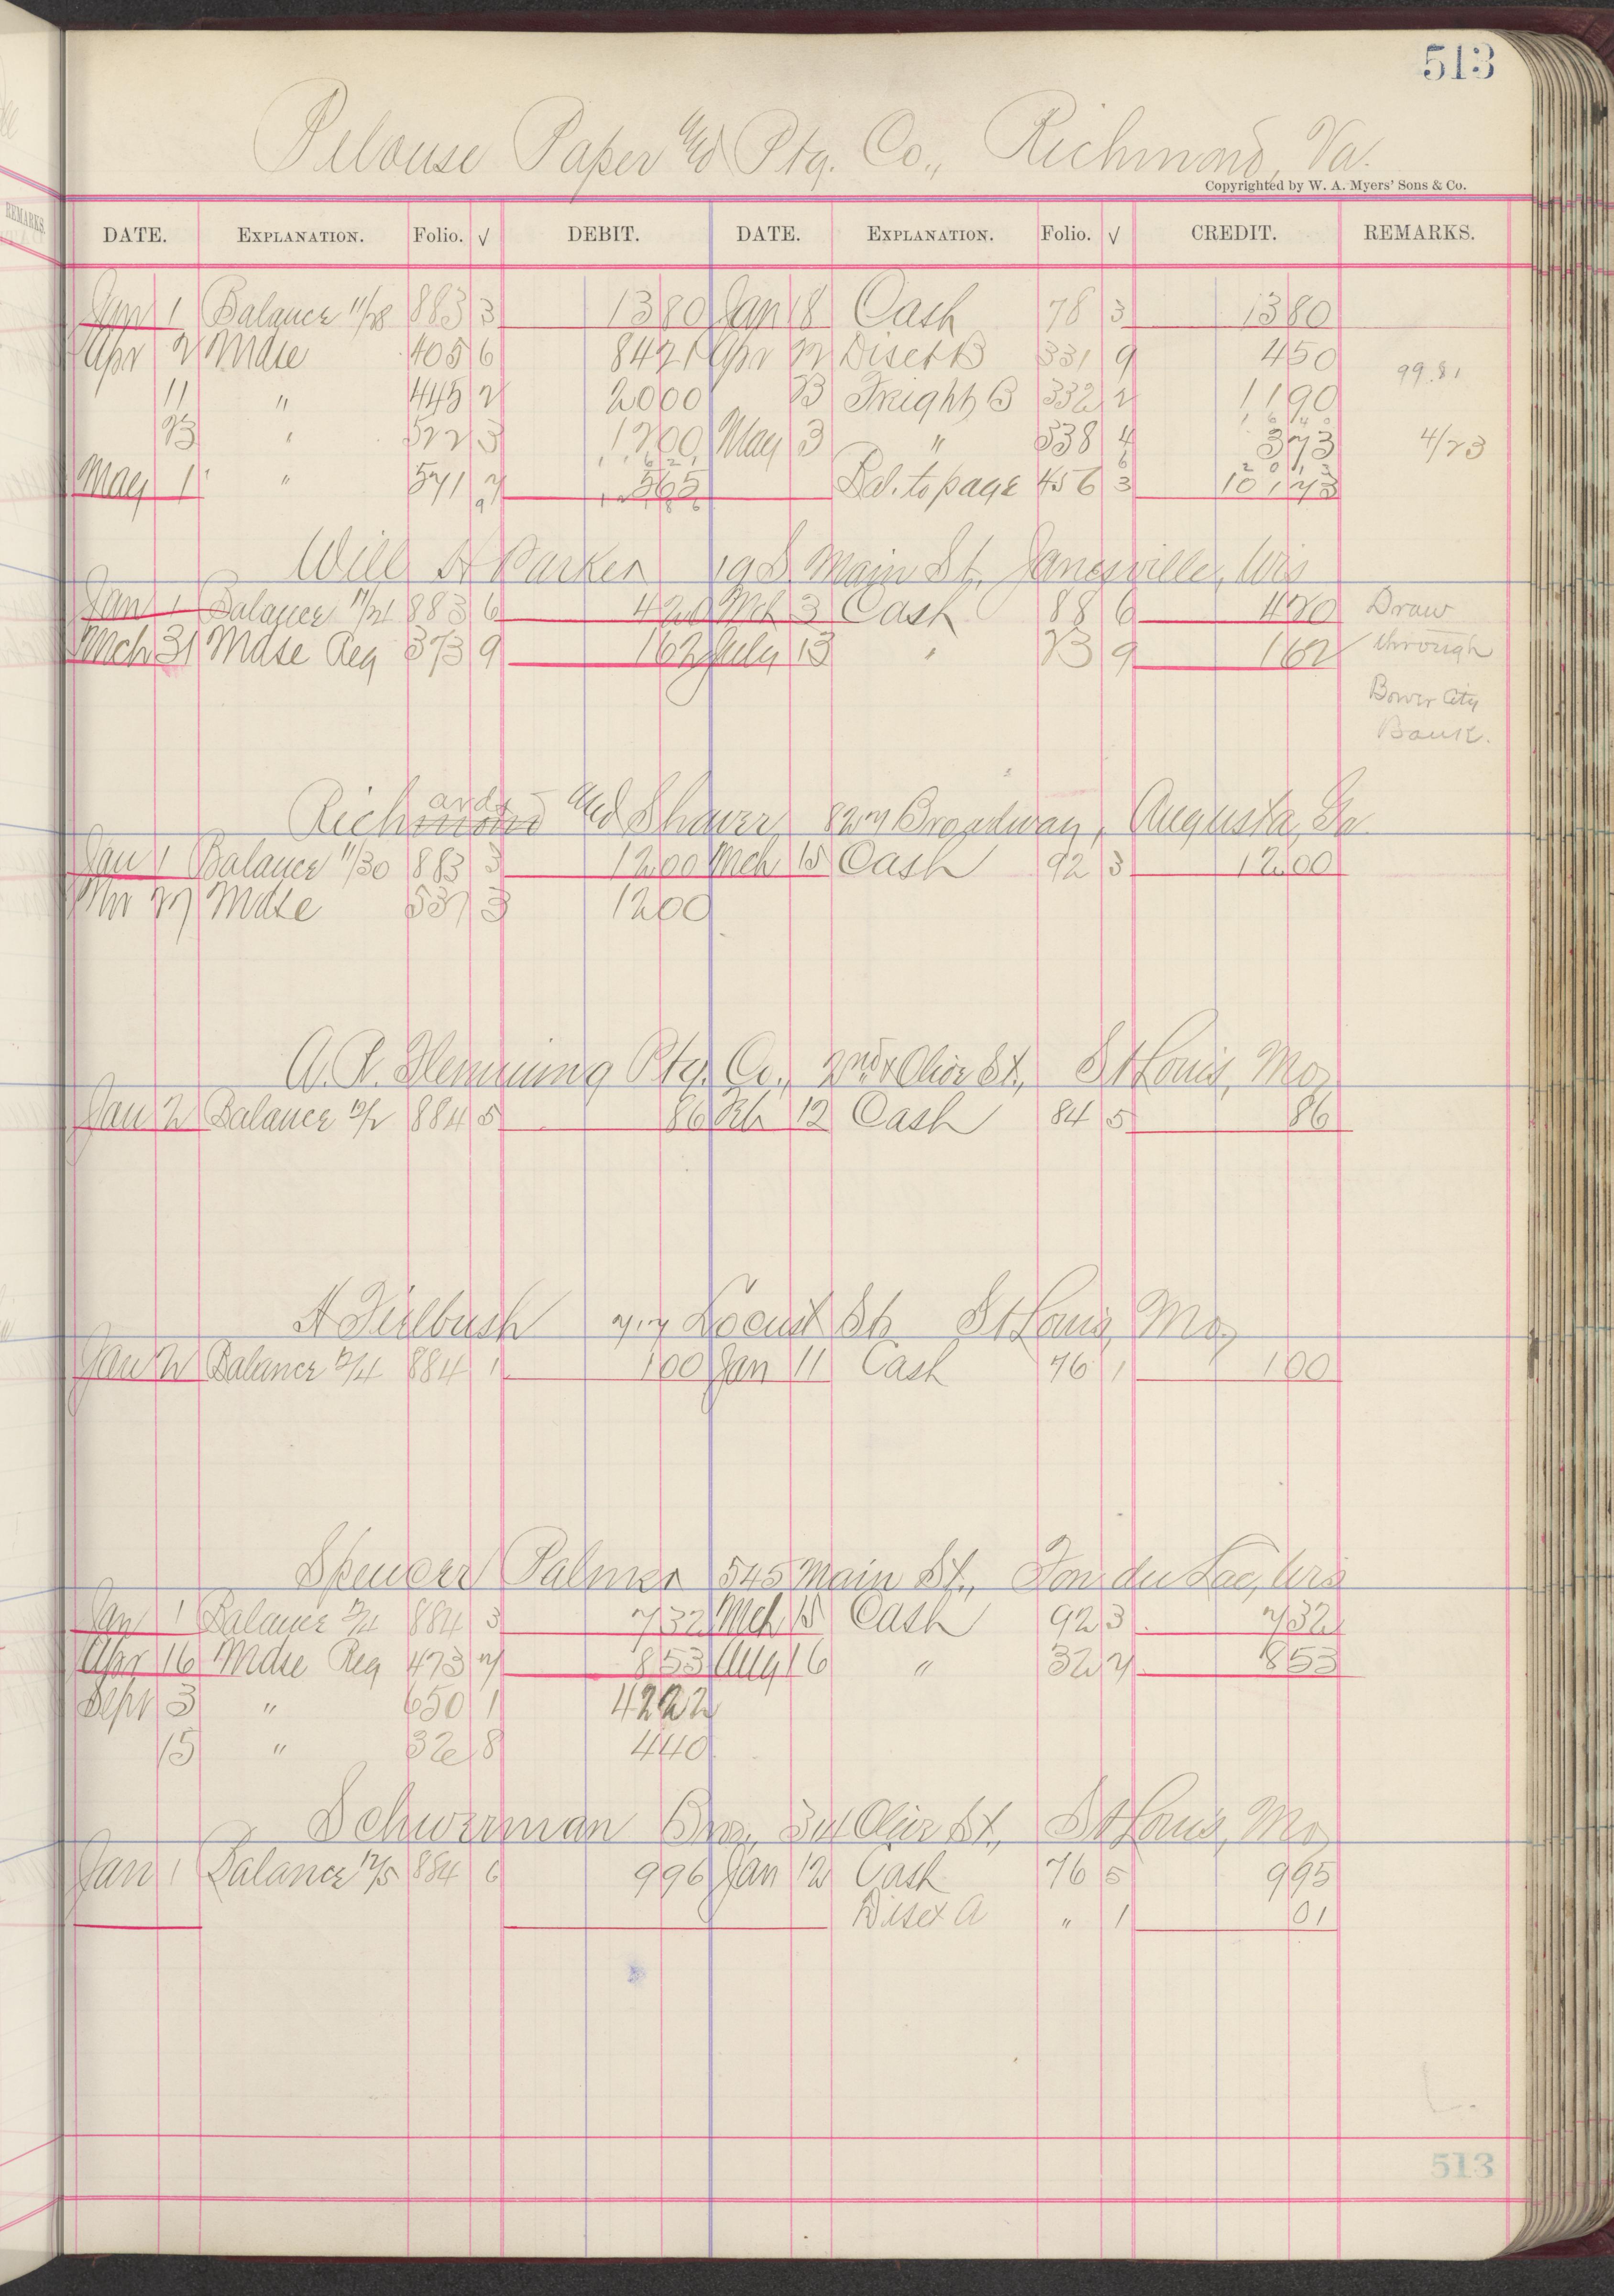 513
Pelouse Paper and Ptg. Co., Richmond, Va.
Copyrighted by W. A. Myers' Sons & Co.
DATE. EXPLANATION. Folio. √ DEBIT. DATE. EXPLANATION. Folio. √ CREDIT. REMARKS.
Jan 1 Balance 11/28 883 3 1380 Jan 18 Cash 78 3 1380
Apr 2 Mdse 405 6 8421 Apr 22 Disct B 331 9 450 99.81
11 " 445 2 2000 23 Freight B 332 2 1190
23 " 522 3 1200 May 3 " 538 4 373 4/23
May 1 " 571 7 565 Bal. to page 456 3 10173
Will A Parker 19 S. Main St. Janesville, Wis
Jan 1 Balance 11/21 883 6 420 Mch 3 Cash 88 6 420 Draw
Mch 31 Mdse Reg 373 9 162 July 13 " 23 9 162 through
Bower City
Bank.
Richards and Shaver, 827 Broadway, Augusta, Ga
Jan 1 Balance 11/30 883 3 1200 Mch 15 Cash 92 3 1200
Apr 27 Mdse 537 3 1200
A. R. Flemming Ptg. Co., 2nd & Olive St., St Louis, Mo.
Jan 2 Balance 12/2 884 5 86 Feb 12 Cash 84 5 86
717 Locust St. St Louis, Mo.
Jan 2 Balance 12/4 884 1 100 Jan 11 Cash 76 1 100
Spencer Palmer 545 Main St., Fon du Lac, Wis
Jan 1 Balance 884 3 732 Mch 15 Cash 92 3 732
Apr 16 Mdse Reg 473 7 853 Aug 16 " 32 7 853
Sept 3 " 650 1 4222
15 " 32 8 440
Schwerman Bros. Olive St., St Louis, Mo
Jan 1 Balance 12/5 884 6 996 Jan 12 Cash 76 5 995
Disct A " 1 01
513